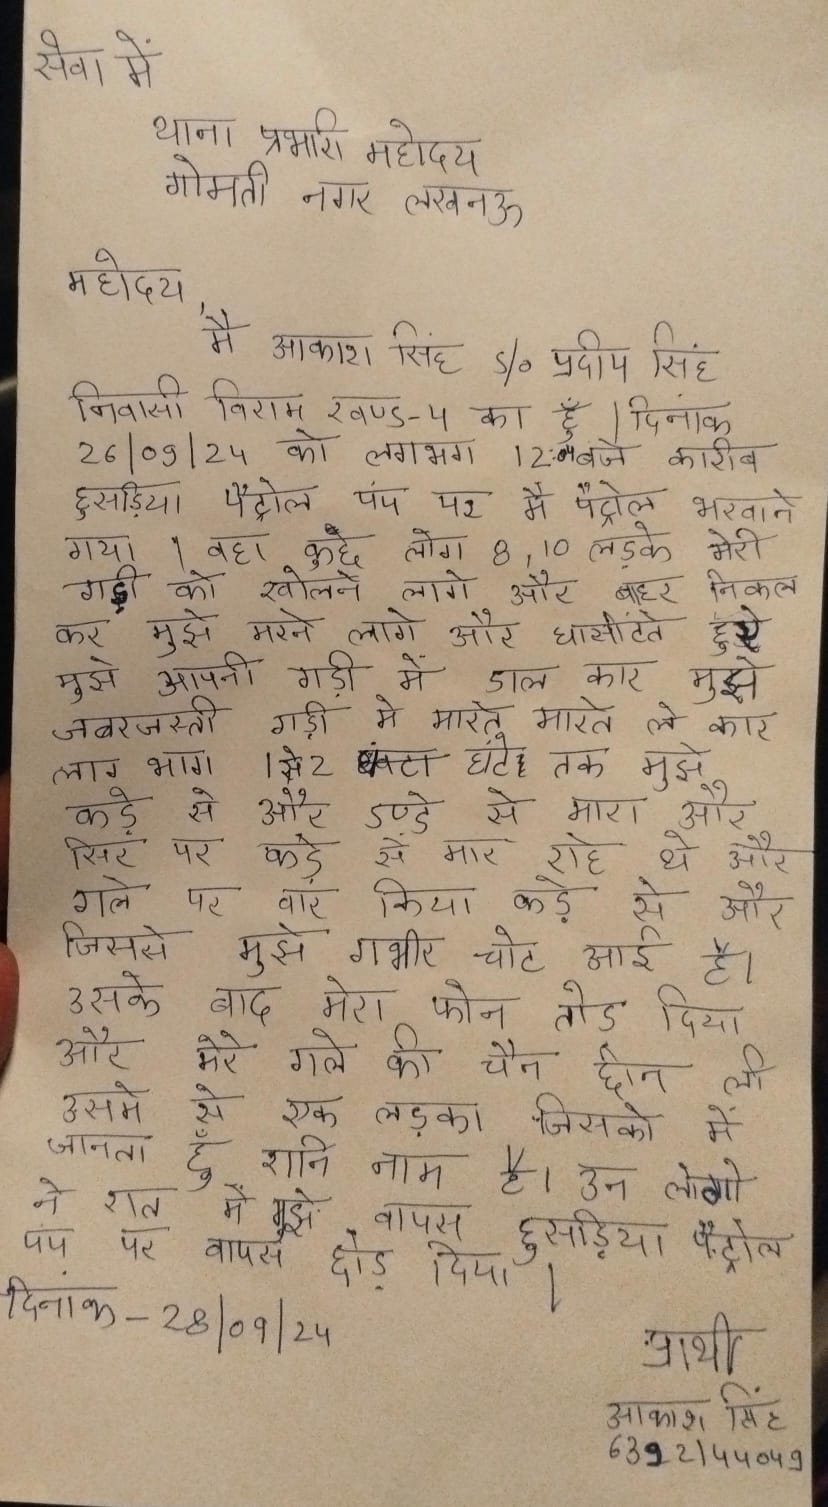 सेवा में
थाना प्रभारी महोदय
गोमती नगर लखनऊ
महोदय,
मै आकाश सिंह S/o प्रदीप सिंह
निवासी विराम खण्ड-4 का हूँ । दिनांक
26/09/24 को लगभग 12: बजे कारीब
हुसड़िया पैट्रोल पंप पर मै पैट्रोल भरवाने
गया । वहा कुछे लोग 8,10 लड़के मेरी
गड़ी को खोलने लागे और बाहर निकल
कर मुझे मरने लागे और घासीटते हुए
मुझे आपनी गड़ी में डाल कार मुझे
जबरजस्ती गड़ी मे मारते मारते ले कार
लाग भाग 1से2 घंटे तक मुझे
कड़े से और डण्डे से मारा और
सिर पर कड़े से मार राहे थे और
गले पर वार किया कड़े से और
जिससे मुझे गभीर चोट आई है।
उसके बाद मेरा फोन तोड दिया
और मेरे गले की चैन छीन ली
उसमे से एक लड़का जिसको में
जानता हूँ शनि नाम है। उन लोगो
ने रात में मुझे वापस हुसड़िया पैट्रोल
पंप पर वापस छोड़ दिया ।
दिनांक - 28/09/24
प्राथी
आकाश सिंह
6392144049